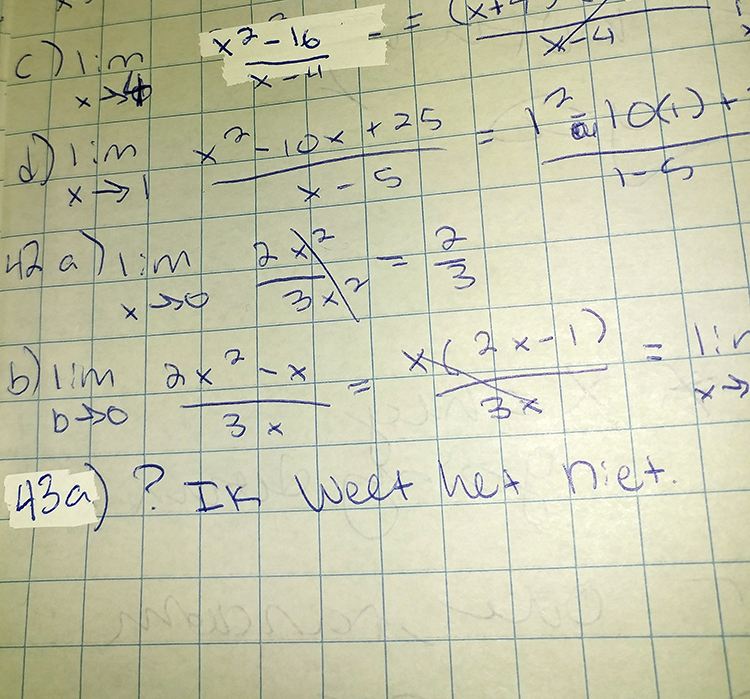 c) lim x→4 x²-16 / x-4 = = (x+4) / x-4
d) lim x→1 x²-10x+25 / x-5 = 1²-10(1)+ / 1-5
42a) lim x→0 2x² / 3x² = 2/3
b) lim b→0 2x²-x / 3x = x(2x-1) / 3x = lim x→
43a) ? Ik weet het niet.